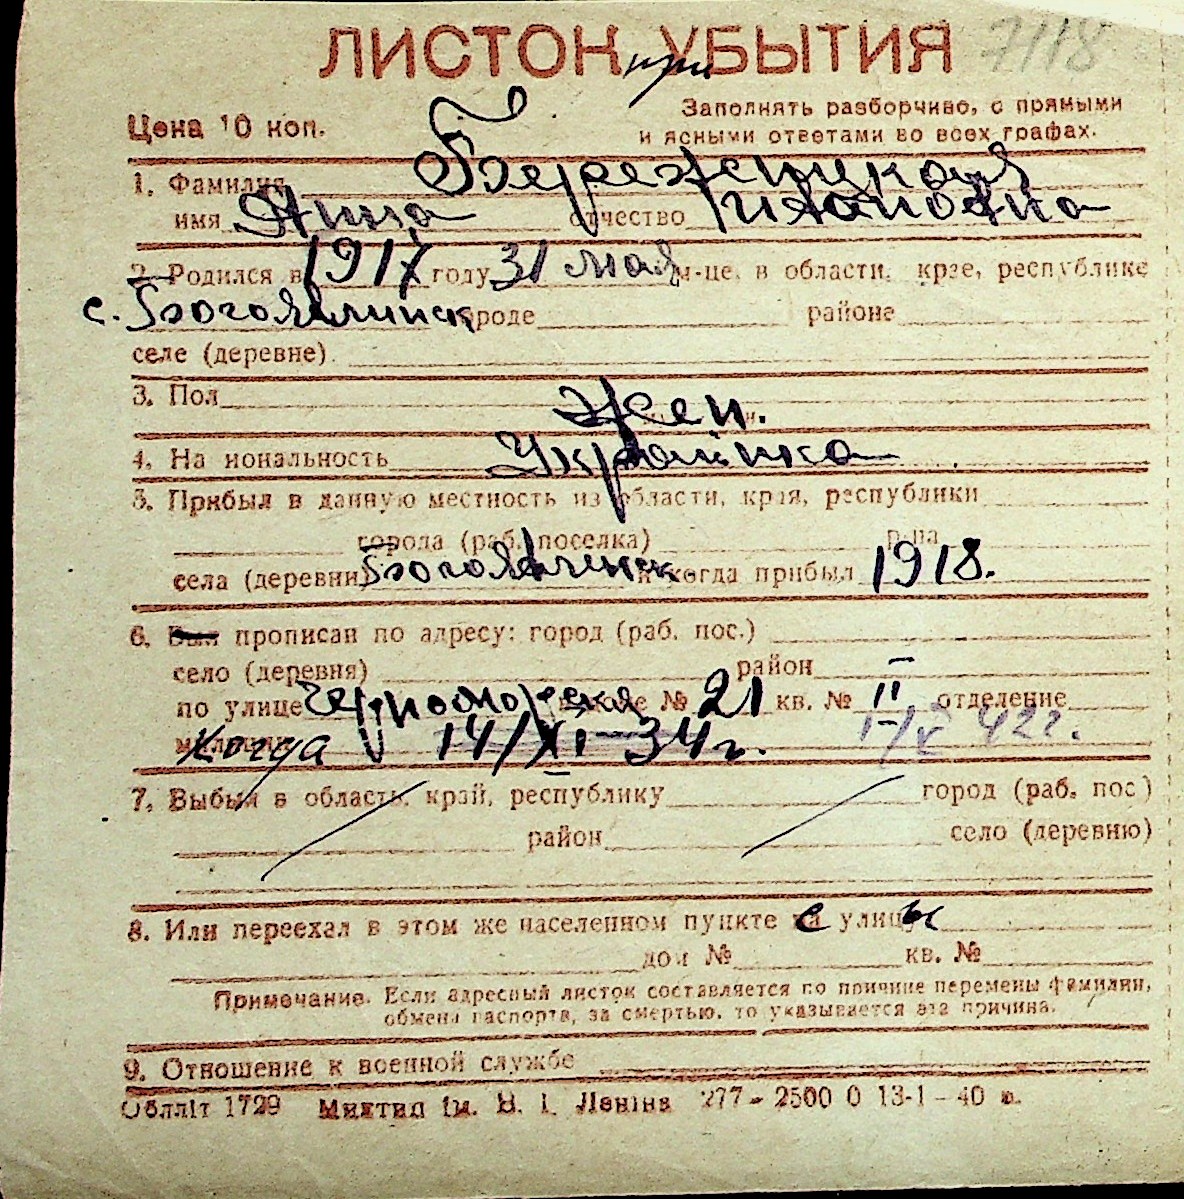 ЛИСТОК при УБЫТИЯ 7118
Цена 10 коп.
Заполнять разборчиво, с прямыми
и ясными ответами во всех графах.
1. Фамилия Бережецкая
имя Анна отчество
2. Родился в 1917 году 31 мая м-це, в области, крае, республике
с. городе районе
селе (деревне)
3. Пол жен.
4. На иональность Українка
5. Прибыл в данную местность из области, края, республики
города (раб. поселка) р-на
села (деревни) и когда прибыл 1918.
6. Был прописан по адресу: город (раб. пос.)
село (деревня) район
по улице Черноморская доме № 21 кв. № II отделение
милиции Когда 14/XI-34г. 42г.
7. Выбыл в область, край, республику город (раб. пос)
район село (деревню)
8. Или переехал в этом же населенном пункте с улицы
дом № кв. №
Примечание. Если адресный листок составляется по причине перемены фамилии,
обмена паспорта, за смертью, то указывается эта причина.
9. Отношение к военной службе
Облліт 1729 Миктип ім. В. І. Леніна 277 - 2500 0 13-1 - 40 в.